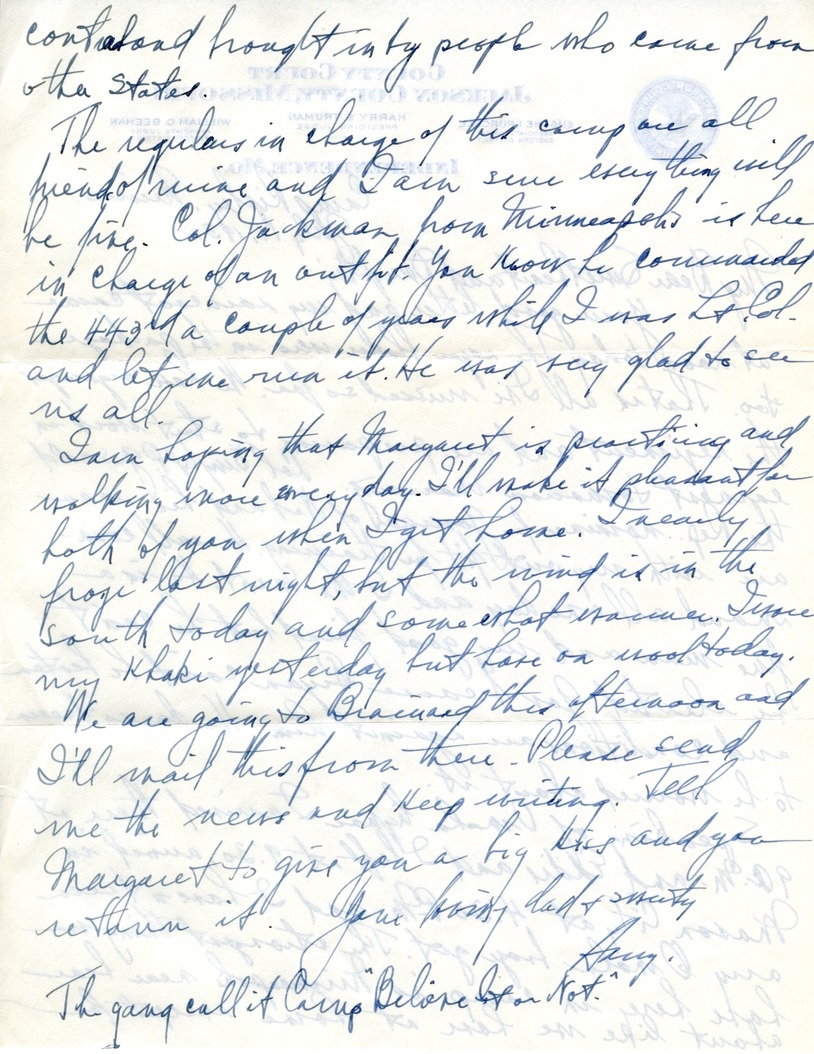 contraband brought in by people who come from
other States.
The regulars in charge of this camp are all
friend of mine and I am sure everything will
be fine. Col. Jackman from Minneapolis is here
in charge of an outfit. You know he commanded
the 443rd a couple of years while I was Lt. Col.
and let me run it. He was very glad to see
us all.
I am hoping that Margaret is practicing and
walking more every day. I'll make it pleasant for
both of you when I get home. I nearly
froze last night, but the wind is in the
south today and somewhat warmer. I wore
my Khaki yesterday but have on wool today.
We are going to Brainard this afternoon and
I'll mail this from there. Please send
me the news and keep writing. Tell
Margaret to give you a big kiss and you
return it. Your loving dad & sweety
Harry.
The gang call it Camp "Believe It or Not."
COUNTY COURT
JACKSON COUNTY, MISSOURI
HARRY S. TRUMAN
WILLIAM O. BEEMAN
INDEPENDENCE, MO.